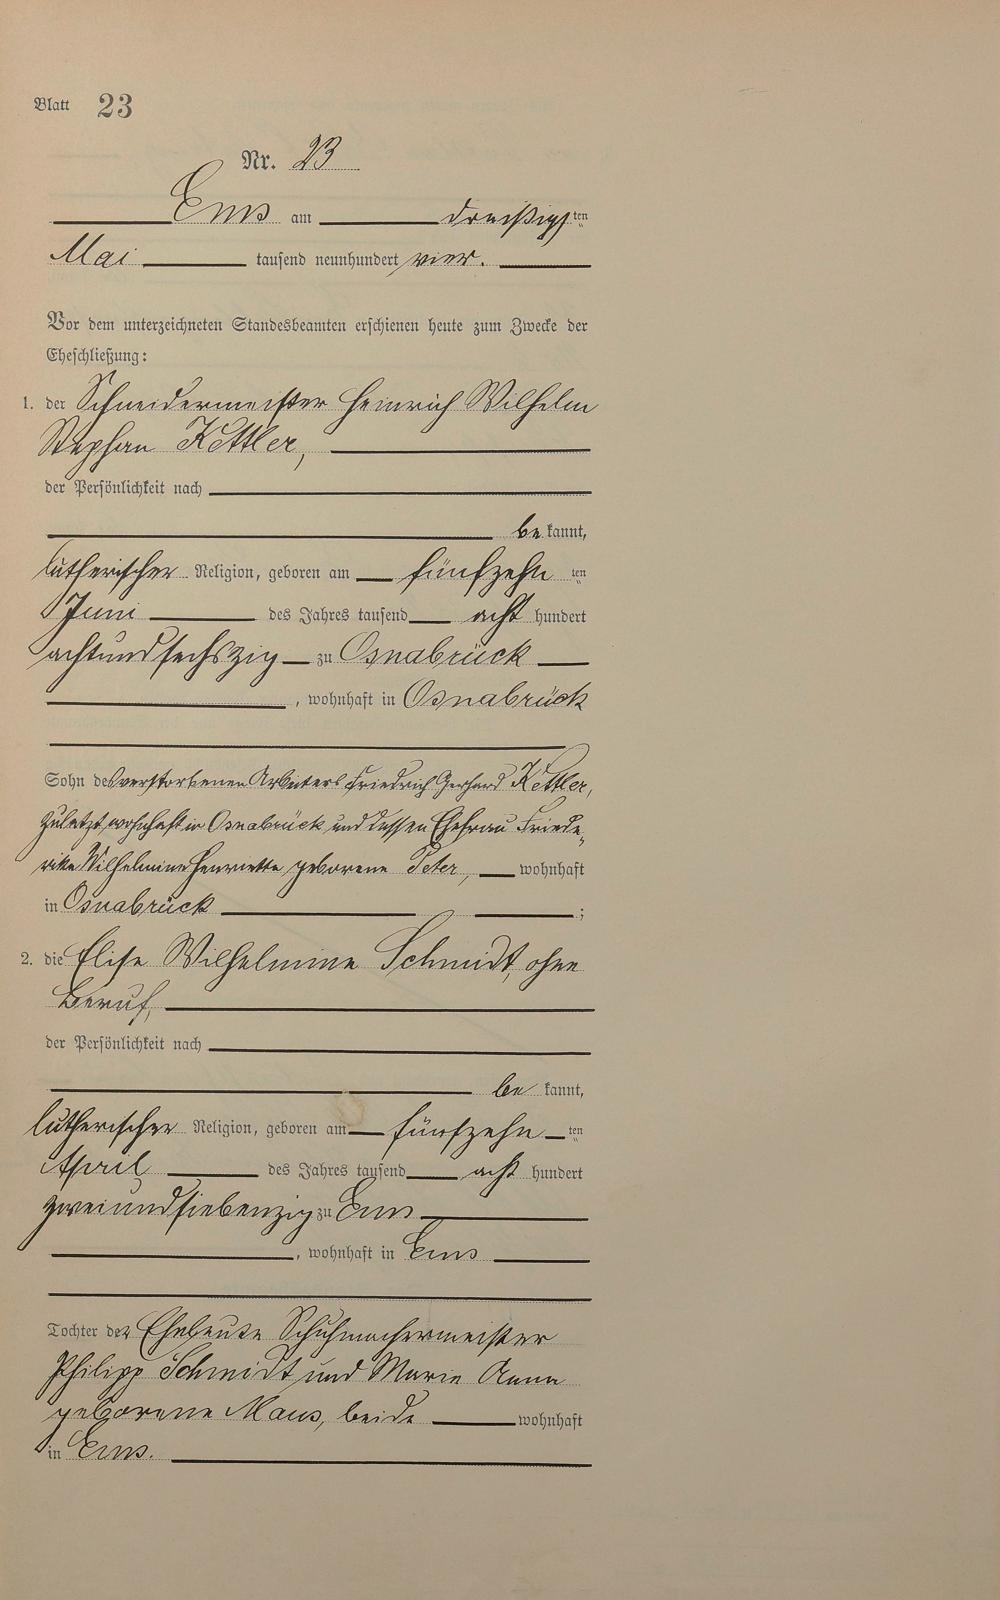 Blatt 23
Nr. 23
Ems am dreißigsten
Mai tausend neunhundert vier.
Vor dem unterzeichneten Standesbeamten erschienen heute zum Zwecke der
Eheschließung:
1. der Schneidermeister Heinrich Wilhelm
Stephan Kettler,
der Persönlichkeit nach
bekannt,
lutherischer Religion, geboren am fünfzehnten
Juni des Jahres tausend acht hundert
achtundsechszig zu Osnabrück
, wohnhaft in Osnabrück
Sohn des verstorbenen Arbeiters Friedrich Gerhard Kettler,
zuletzt wohnhaft in Osnabrück und dessen Ehefrau Friede-
rike Wilhelmine Henriette geborene Peter, wohnhaft
in Osnabrück ;
2. die Elise Wilhelmine Schmidt, ohne
Beruf,
der Persönlichkeit nach
bekannt,
lutherischer Religion, geboren am fünfzehnten
April des Jahres tausend acht hundert
zweiundsiebenzig zu Ems
, wohnhaft in Ems
Tochter der Eheleute Schuhmachermeister
Philipp Schmidt und Marie Anna
geborene Maus, beide wohnhaft
in Ems.